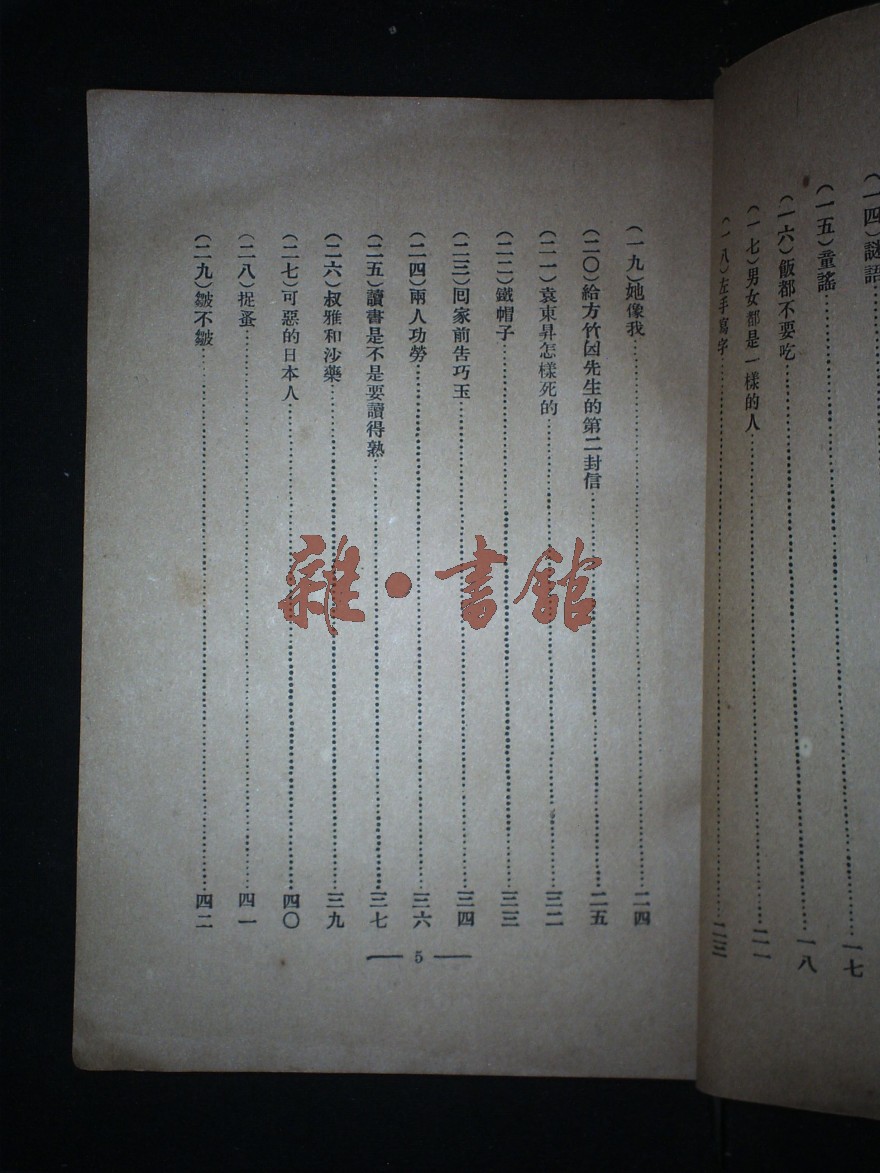 (一四)謎語
(一五)童謠……一七
(一六)飯都不要吃……一八
(一七)男女都是一樣的人……二一
(一八)左手寫字……二三
(一九)她像我……二四
(二〇)給方竹因先生的第二封信……二五
(二一)袁東昇怎樣死的……三二
(二二)鐵帽子……三三
(二三)囘家前告巧玉……三四
(二四)兩人功勞……三六
(二五)讀書是不是要讀得熟……三七
(二六)叔雅和沙藥……三九
(二七)可惡的日本人……四〇
(二八)捉蚤……四一
(二九)皺不皺……四二
— 5 —
雜·書館